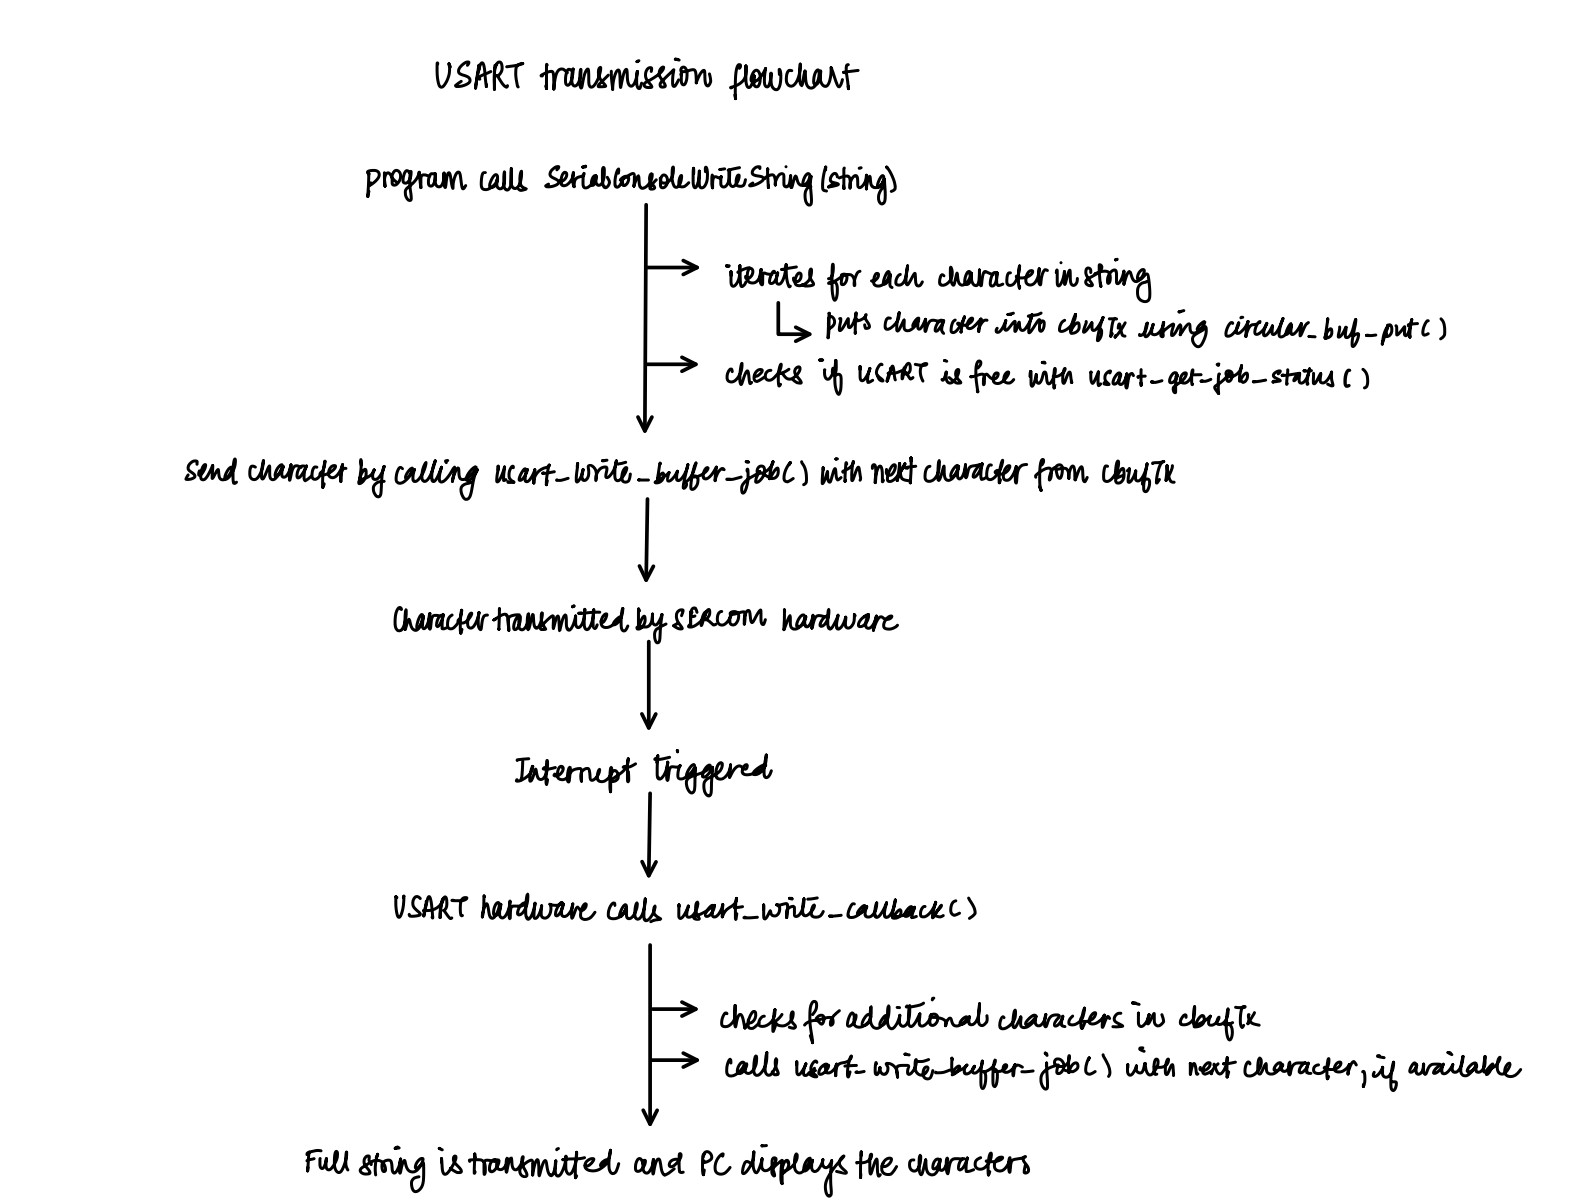 USART transmission flowchart
program calls SerialConsoleWriteString(string)
iterates for each character in string
puts character into cbufTx using circular_buf_put()
checks if USART is free with usart_get_job_status()
Send character by calling usart_write_buffer_job() with next character from cbufTx
Character transmitted by SERCOM hardware
Interrupt triggered
USART hardware calls usart_write_callback()
checks for additional characters in cbufTx
calls usart_write_buffer_job() with next character, if available
Full string is transmitted and PC displays the characters